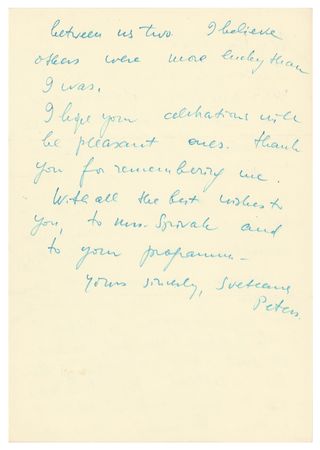 between us two I believe
others were more lucky than
I was.
I hope your celebrations will
be pleasant ones. Thank
you for remembering me.
With all the best wishes to
you, to Mrs. Spivak and
to your programm –
Yours sincerely, Svetlana
Peters.